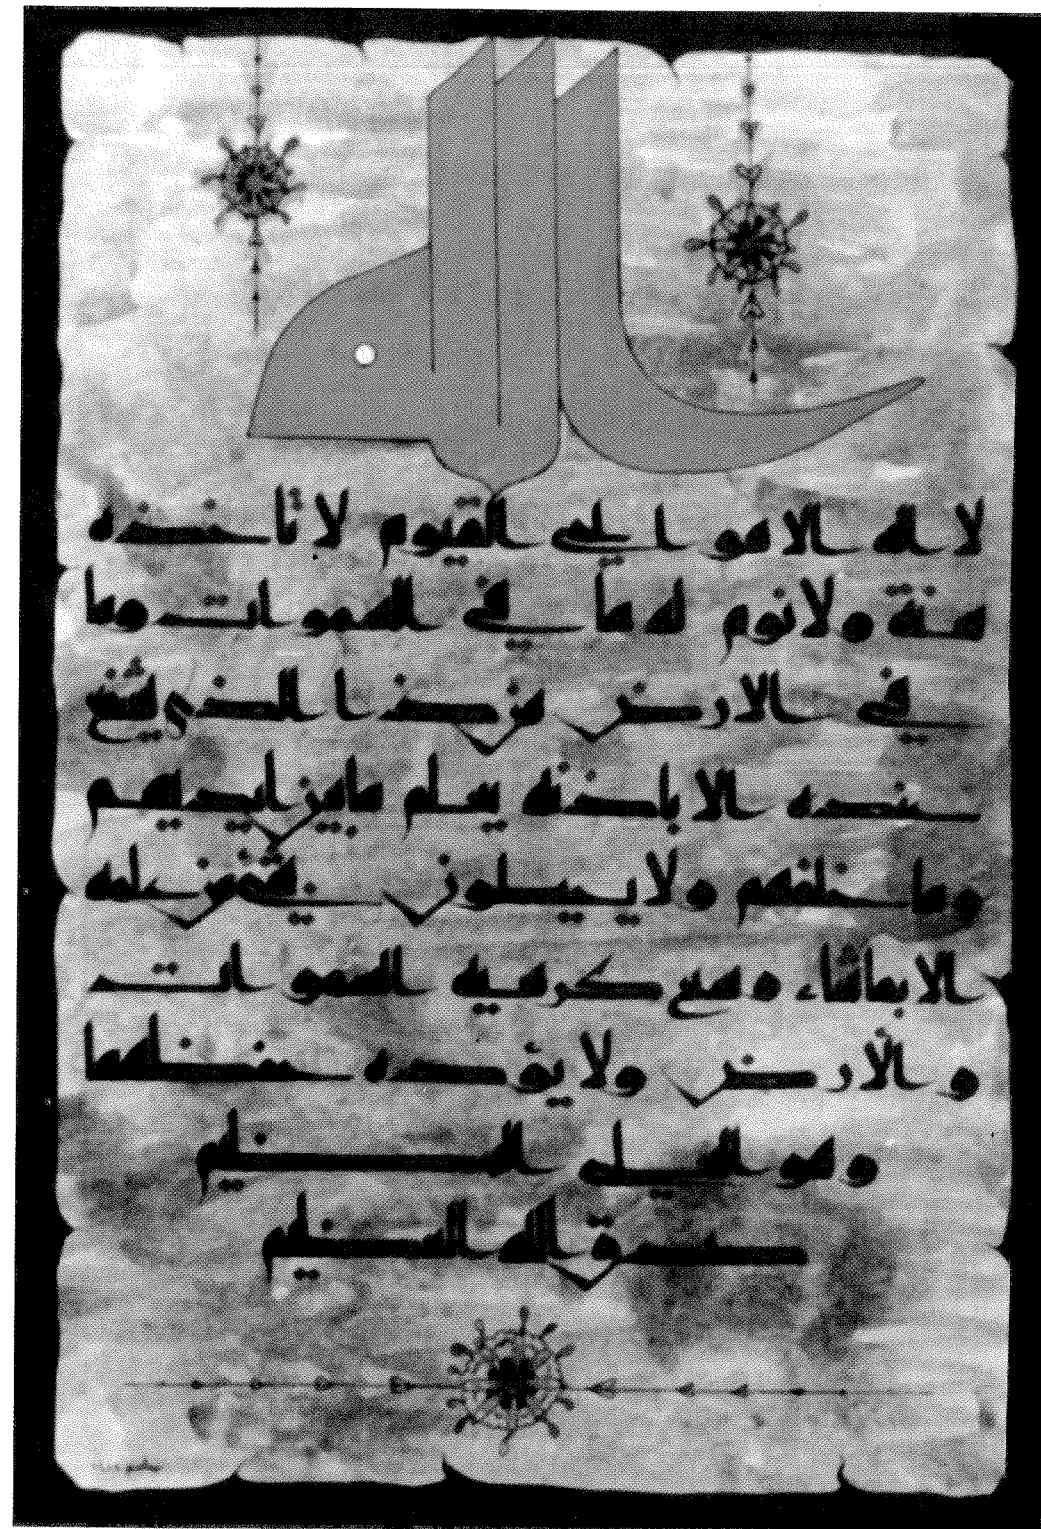 الله
لا اله الا هو الحي القيوم لا تأخذه
سنة ولا نوم له ما في السموات وما
في الارض من ذا الذي يشفع
عنده الا باذنه يعلم ما بين ايديهم
وما خلفهم ولا يحيطون بشيء من علمه
الا بما شاء وسع كرسيه السموات
والارض ولا يؤده حفظهما
وهو العلي العظيم
صدق الله العظيم